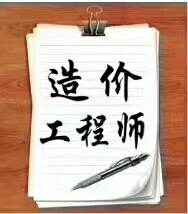 造价
工程师